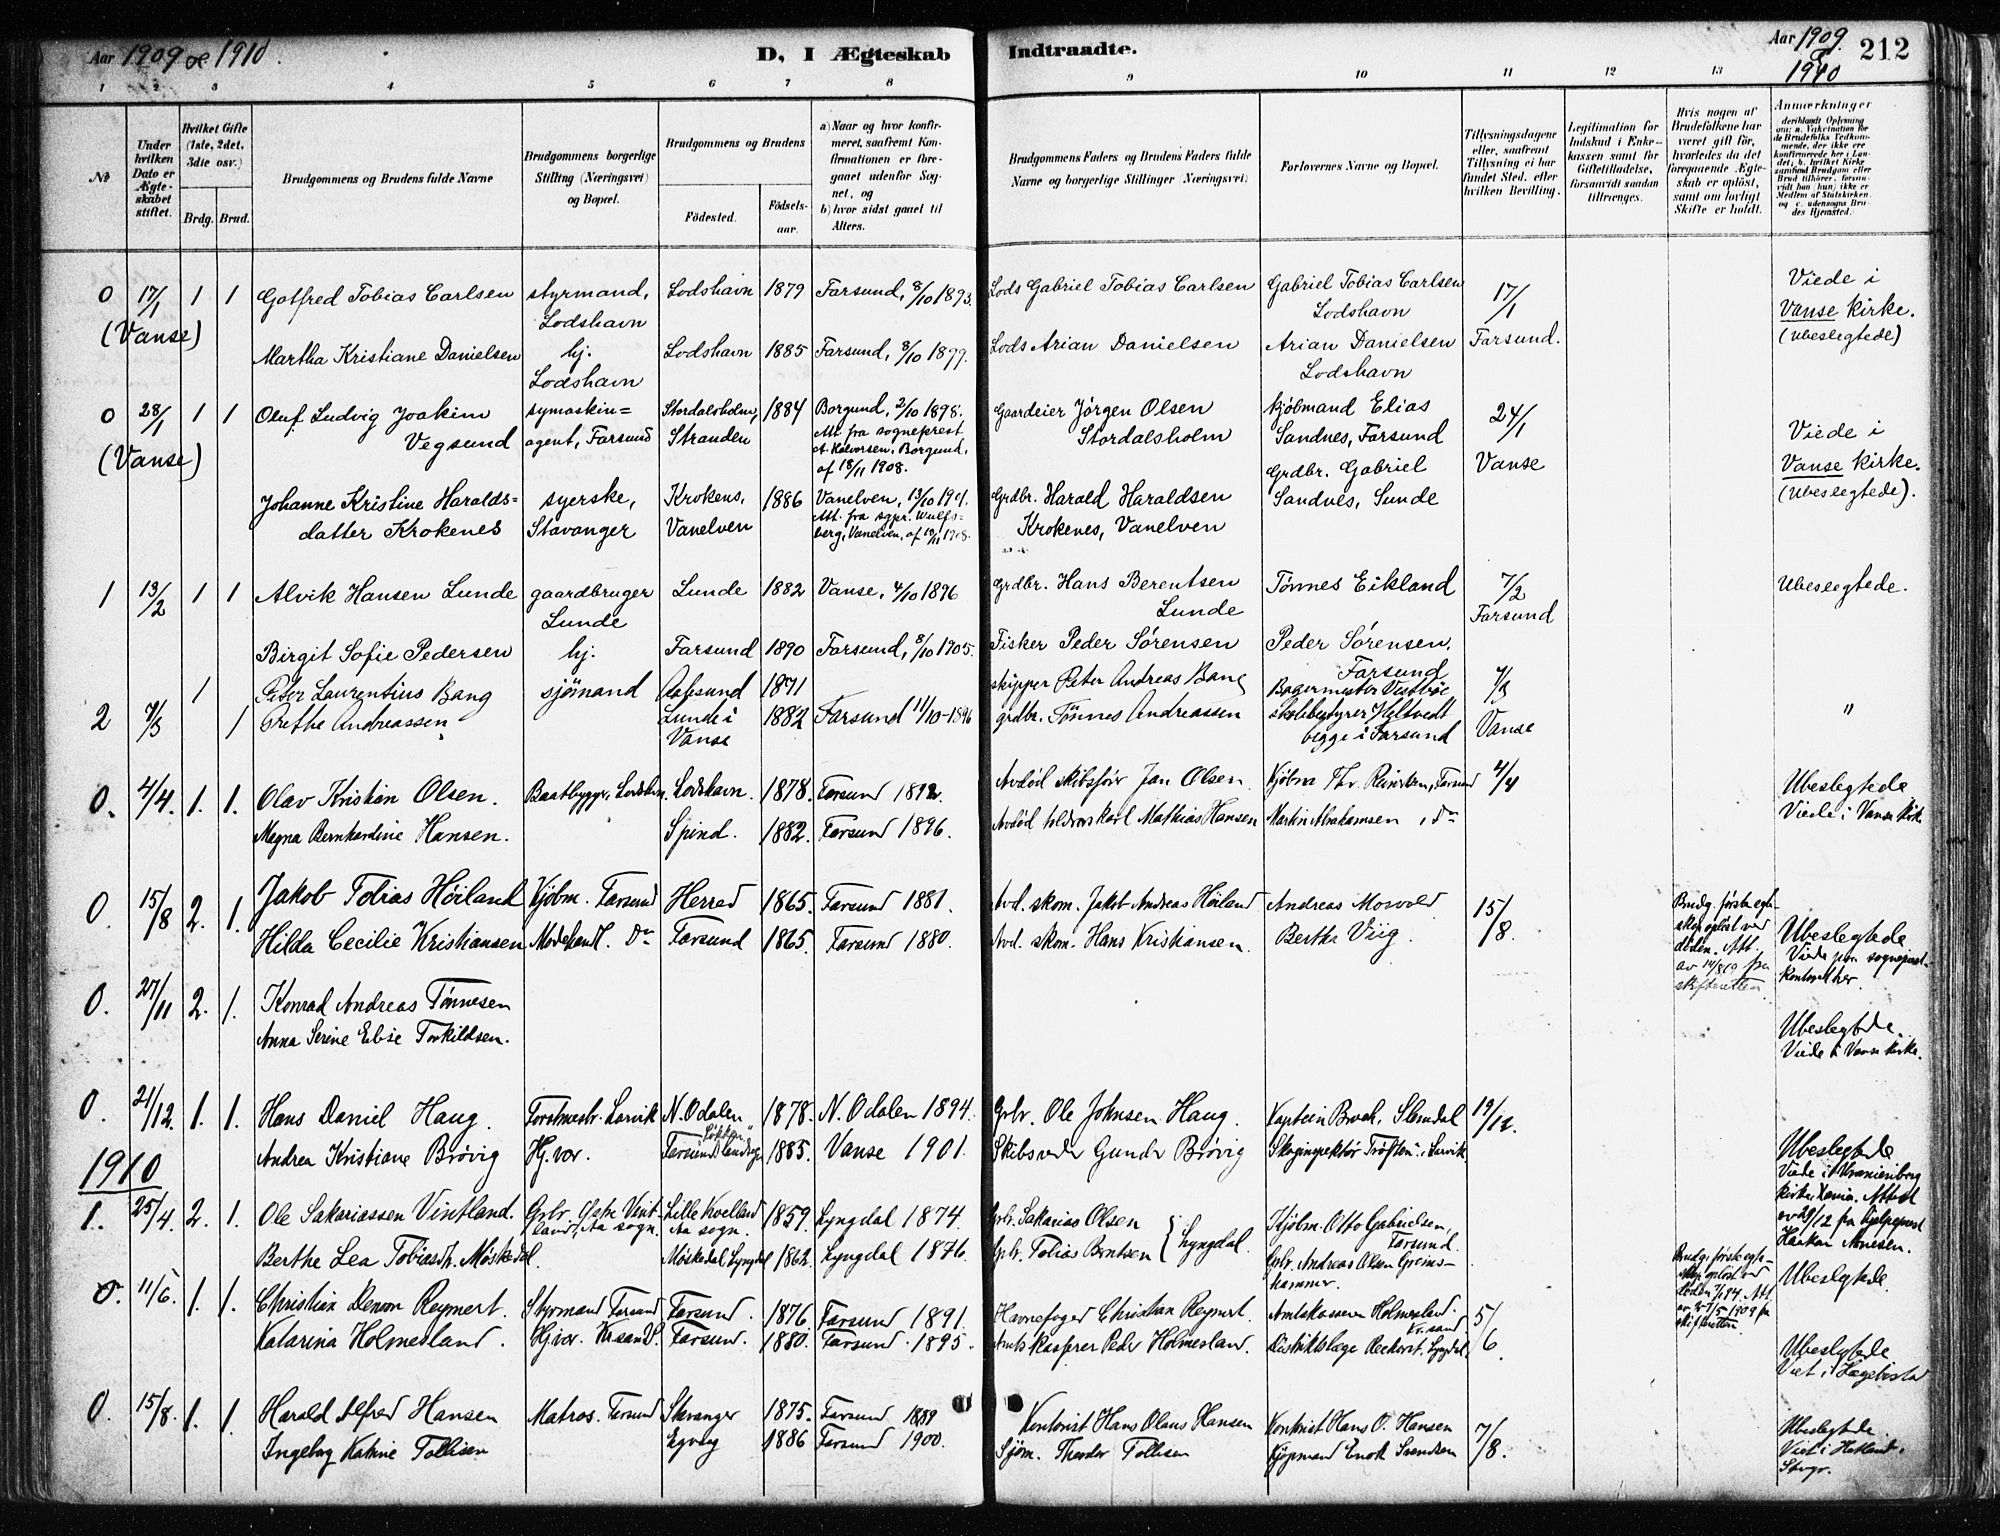 Aar 1909 og 1910.
D, I Ægteskab
Indtraadte.
Aar 1909. & 1910
212
1 2 3 4 5 6 7 8 9 10 11 12 13
No
Under hvilken Dato er Ægteskabet stiftet.
Hvilket Gifte (1ste, 2det, 3die osv.)
Brdg. Brud.
Brudgommens og Brudens fulde Navne
Brudgommens borgerlige Stilling (Næringsvei) og Bopæl.
Brudgommens og Brudens
Fødested.
Fødselsaar.
a) Naar og hvor konfirmeret, saafremt Konfirmationen er foregaaet udenfor Sognet, og
b) hvor sidst gaaet til Alters.
Brudgommens Faders og Brudens Faders fulde Navne og borgerlige Stillinger (Næringsvei)
Forlovernes Navne og Bopæl.
Tillysningsdagene eller, saafremt Tillysning ei har fundet Sted, efter hvilken Bevilling.
Legitimation for Indskud i Enkekassen samt for Giftetilladelse, forsaavidt saadan tiltrænges.
Hvis nogen af Brudefolkene har været gift før, hvorledes da det foregaaende Ægteskab er opløst, samt om lovligt Skifte er holdt.
Anmærkninger
0 17/1 1 1 Gotfred Tobias Carlsen styrmand, Lodshavn 1879 Farsund, 8/10 1893. Lods Gabriel Tobias Carlsen Gabriel Tobias Carlsen 17/1 Viede i
(Vanse) Lodshavn Lodshavn Vanse kirke.
Martha Kristiane Danielsen hj. Lodshavn 1885 Farsund, 8/10 1899. Lods Arian Danielsen Arian Danielsen Farsund. (ubeslegtede)
Lodshavn Lodshavn
0 28/1 1 1 Oluf Ludvig Joakim symaskin= Stordalsholm, 1884 Borgund, 2/10 1898. Gaardeier Jørgen Olsen kjøbmand Elias 24/1
(Vanse) Vegsund agent, Farsund Stranden Att. fra sogneprest Stordalsholm Sandnes, Farsund Viede i
Halvorsen, Borgund, Grdbr. Gabriel Vanse Vanse kirke.
af 18/11 1908.
Johanne Kristine Haralds= syerske, Krokenes, 1886 Vanelven, 13/10 1901. Grdbr. Harald Haraldsen Sandnes, Sunde (Ubeslegtede).
datter Krokenes Stavanger Vanelven Att. fra sgpr. Wulfs- Krokenes, Vanelven
berg, Vanelven, af 10/11 1908.
1 13/2 1 1 Alvik Hansen Lunde gaardbruger Lunde 1882 Vanse, 4/10 1896 Grdbr. Hans Berentsen Tønnes Eikland 7/2 Ubeslegtede.
Lunde Lunde Farsund
Birgit Sofie Pedersen hj. Farsund 1890 Farsund, 8/10 1905. Fisker Peder Sørensen Peder Sørensen,
Farsund
1 Peter Laurentius Bang sjømand Aalesund 1871 skipper Peter Andreas Bang Bagermester Vestbøe 7/3
2 7/3 1 Grethe Andreassen Lunde i 1882 Farsund 11/10-1896 grdbr. Tønnes Andreassen skolebestyrer Heltvedt "
Vanse begge i Farsund Vanse
0. 4/4. 1. 1. Olav Kristian Olsen. Baatbygger, Lodshavn. Lodshavn. 1878. Farsund 1892. Avdød skibsfører Jan Olsen. Kjøbm Thr. Reinertsen, Farsund 4/4 Ubeslegtede
Magna Bernhardine Hansen. Spind. 1882. Farsund 1896. Avdød Mathias Hansen Martin Abrahamsen, Do Viede i Vanse Kirke
0. 15/8 2. 1. Jakob Tobias Høiland Kjøbm. Farsund Herred 1865. Farsund 1881. Avd. skom. Jakob Andreas Høiland Andreas Mosvold 15/8. Brudg. første egte-
Hilda Cecilie Kristiansen Modehandl. Do Farsund 1865. Farsund 1880. Avd. skom. Hans Kristiansen. Bertha Viig. skap opløst ved
døden. Att. av 14/8 09 fra skifteretten.
Ubeslegtede
Viede paa sogneprest-
kontoret her.
0. 27/11 2. 1. Konrad Andreas Tønnesen
Anna Serine Elise Torkildsen.
Ubeslegtede.
Viede i Vanse kirke.
0. 21/12. 1. 1. Hans Daniel Haug. Forstmestr. Larvik N. Odalen 1878. N. Odalen 1894. Grbr. Ole Johnsen Haug. Kaptein Brech, Slemdal 19/12.
Andrea Kristiane Brøvig Hj. vær. Farsund landsogn 1885. Vanse 1901. Skibsreder Gunder Brøvig Skoginspektør Trøften i Larvik.
Ubeslegtede
Viede i Uranienborg
kirke, Xania. Attest
av 29/12 fra hjelpeprest
Haakon Arnesen.
1910
1. 25/4. 2. 1. Ole Sakariassen Vintland. Grbr. Vint- Lille Kvelland 1859. Lyngdal 1874. Grbr. Sakarias Olsen Kjøbm. Otto Gabrielsen,
land, Aa sogn. Aa sogn. Farsund.
Berthe Lea Tobiasdtr. Møskedal. Møskedal Lyngdal 1862. Lyngdal 1876. Grbr. Tobias Berntsen } Lyngdal. Grbr. Andreas Olsen Grams-
hammer.
Brudg. første egte-
skap opløst ved
døden Att. av 27/5 1909 fra skifteretten.
Ubeslegtede.
0. 11/6. 1. 1. Christian Reymert. Styrmand Farsund Farsund. 1876. Farsund 1891. Havnefoged Christian Reymert. Amtskasserer Holmesland. 5/6
Kr.sand
Katarina Holmesland. Hj. vær. Kr.sand S. Farsund. 1880. Farsund 1895. Amtskasserer Peder Holmesland. Distriktslæge Lyngdal.
Ubeslegtede
Viet i Hægebostad
0. 15/8. 1. 1. Harald Alfred Hansen Matros. Farsund Stavanger 1875. Farsund 1889 Kontorist Hans Olaus Hansen Kontorist Hans O. Hansen 7/8.
Ingeborg Katrine Tollisen Egvåg 1886 Farsund 1900. Sjøm. Theodor Tollisen Kjøpmand Enok Svendsen
Ubeslegtede.
Viet i Hetland,
Stvgr.